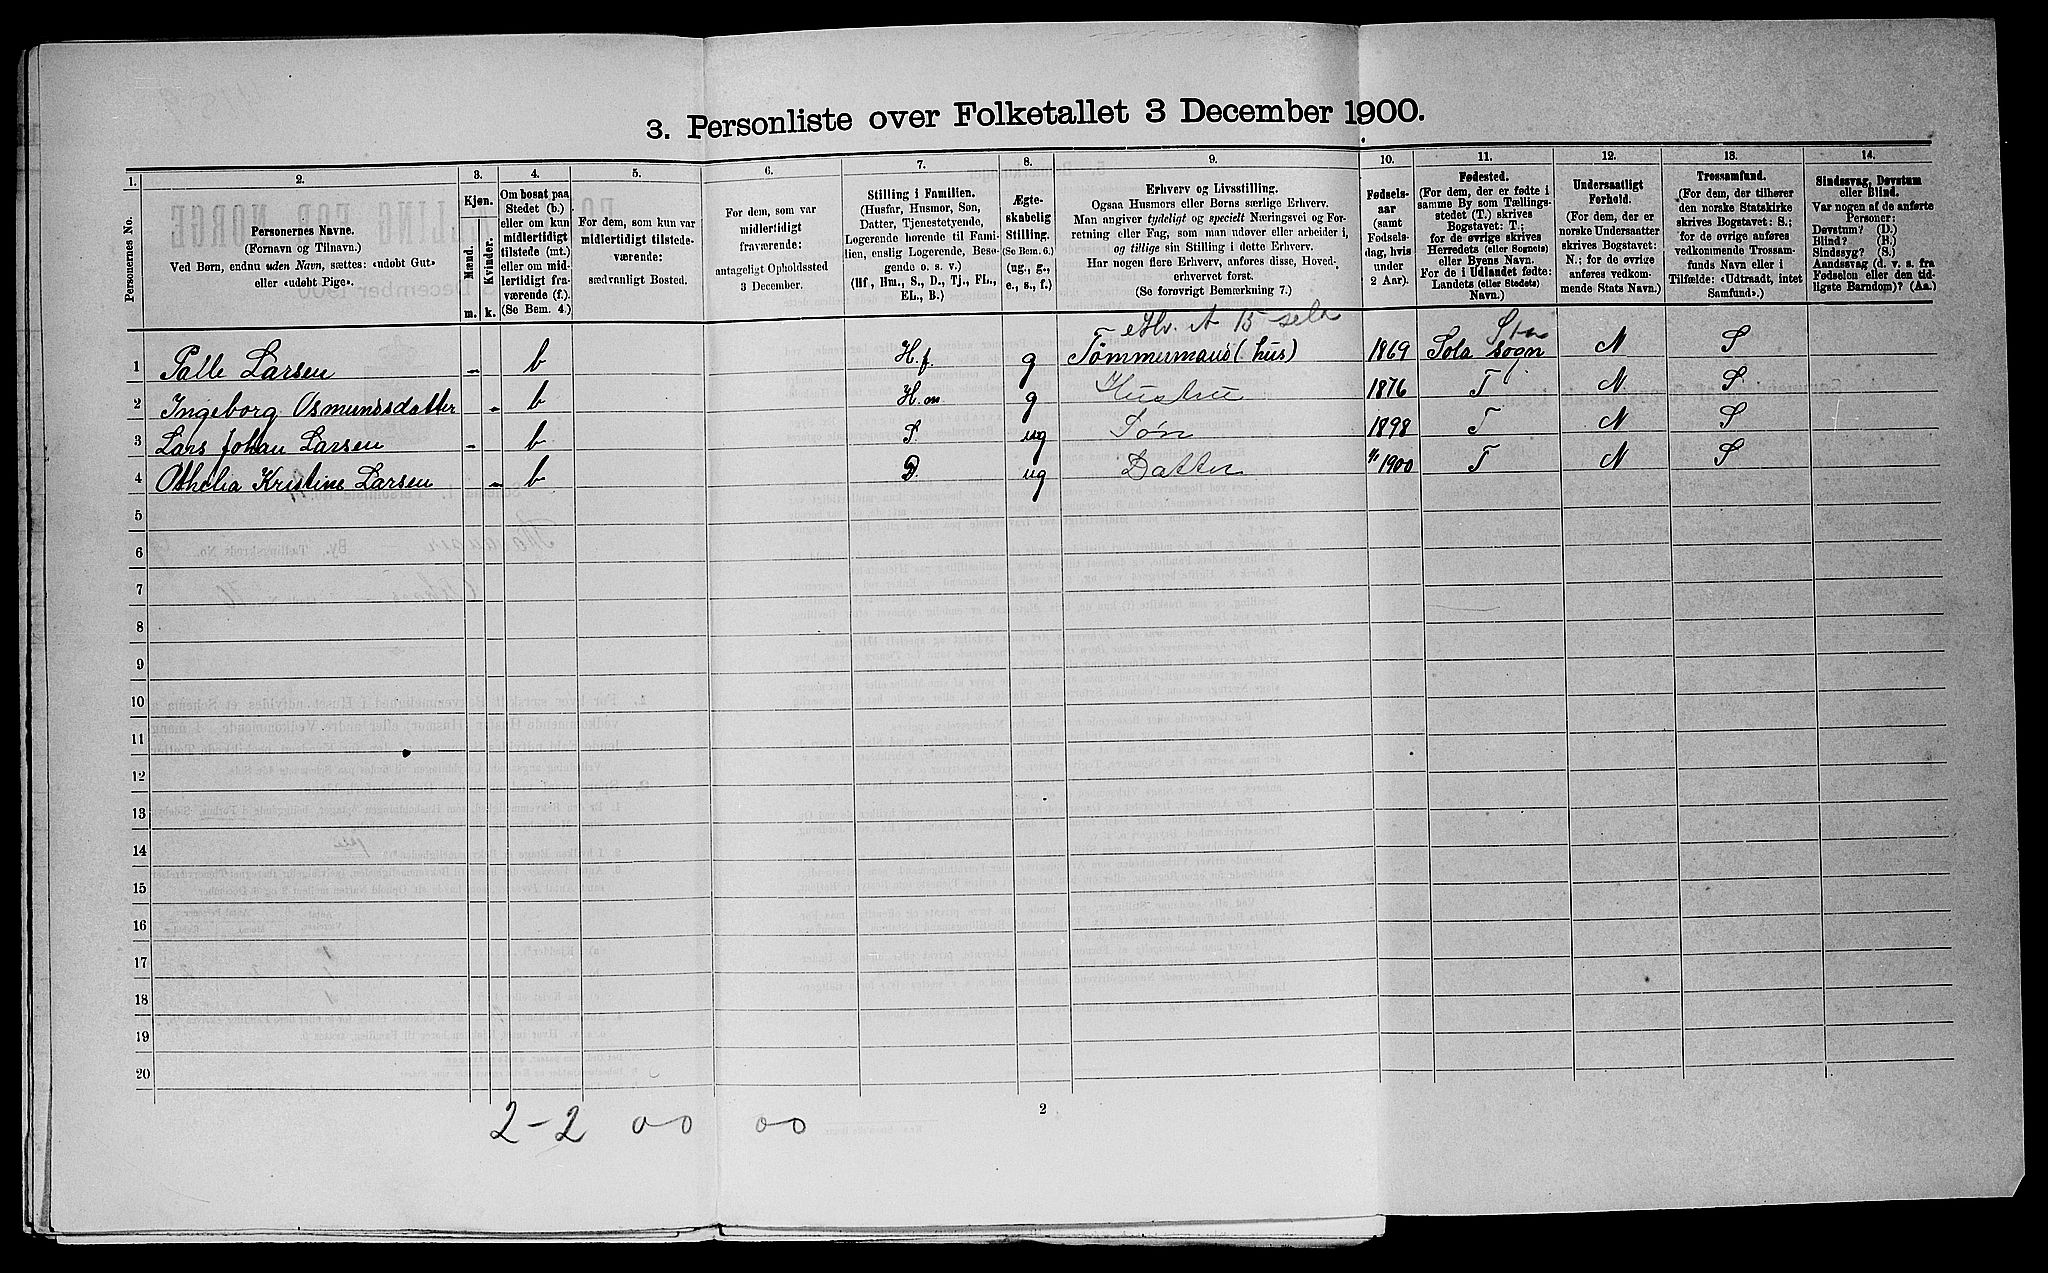 3. Personliste over Folketallet 3 December 1900.
1. 2. 3. 4. 5. 6. 7. 8. 9. 10. 11. 12. 13. 14.
Personernes No.
Personernes Navne.
(Fornavn og Tilnavn.)
Ved Børn, endnu uden Navn, sættes: «udøbt Gut»
eller «udøbt Pige».
Kjøn.
Mænd.
Kvinder.
m. k.
Om bosat paa
Stedet (b.)
eller om kun
midlertidigt
tilstede (mt.)
eller om mid-
lertidigt fra-
værende (f.).
(Se Bem. 4.)
For dem, som kun var
midlertidigt tilstede-
værende:
sædvanligt Bosted.
For dem, som var
midlertidigt
fraværende:
antageligt Opholdssted
3 December.
Stilling i Familien.
(Husfar, Husmor, Søn,
Datter, Tjenestetyende,
Logerende hørende til Fami-
lien, enslig Logerende, Besø-
gende o. s. v.)
(Hf., Hm., S., D., Tj., FL.,
EL., B.)
Ægte-
skabelig
Stilling.
(Se Bem. 6.)
(ug., g.,
e., s., f.)
Erhverv og Livsstilling.
Ogsaa Husmors eller Børns særlige Erhverv.
Man angiver tydeligt og specielt Næringsvei og For-
retning eller Fag, som man udøver eller arbeider i,
og tillige sin Stilling i dette Erhverv.
Har nogen flere Erhverv, anføres disse, Hoved-
erhvervet først.
(Se forøvrigt Bemærkning 7.)
Fødsels-
aar
(samt
Fødsels-
dag, hvis
under
2 Aar).
Fødested.
(For dem, der er fødte i
samme By som Tællings-
stedet (T.) skrives
Bogstavet: T.;
for de øvrige skrives
Herredets (eller Sognets)
eller Byens Navn.
For de i Udlandet fødte:
Landets (eller Stedets)
Navn.)
Undersaatligt
Forhold.
(For dem, der er
norske Undersaatter
skrives Bogstavet:
N.; for de øvrige
anføres vedkom-
mende Stats Navn.)
Trossamfund.
(For dem, der tilhører
den norske Statskirke
skrives Bogstavet: S.;
for de øvrige anføres
vedkommende Trossam-
funds Navn eller i
Tilfælde: «Udtraadt, intet
Samfund».)
Sindssvag, Døvstum
eller Blind.
Var nogen af de anførte
Personer:
Døvstum? (D.)
Blind? (B.)
Sindssyg? (S.)
Aandssvag (d. v. s. fra
Fødselen eller den tid-
ligste Barndom)? (Aa.)
1 Palle Larsen - b H.f. g Tømmermand (hus) 1869 Sola sogn N S
2 Ingeborg Osmundsdatter - b H.m g Hustru 1876 T N S
3 Lars Johan Larsen - b S. ug Søn 1898 T N S
4 Othelia Kristine Larsen - b D. ug Datter 1900 T N S
5
6
7
8
9
10
11
12
13
14
15
16
17
18
19
20
2-2 00 00
2